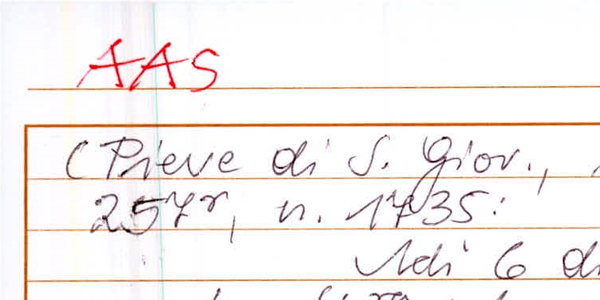 AAS
(Pieve di S. Giov.,
257r, n. 1735:
Adi 6 di